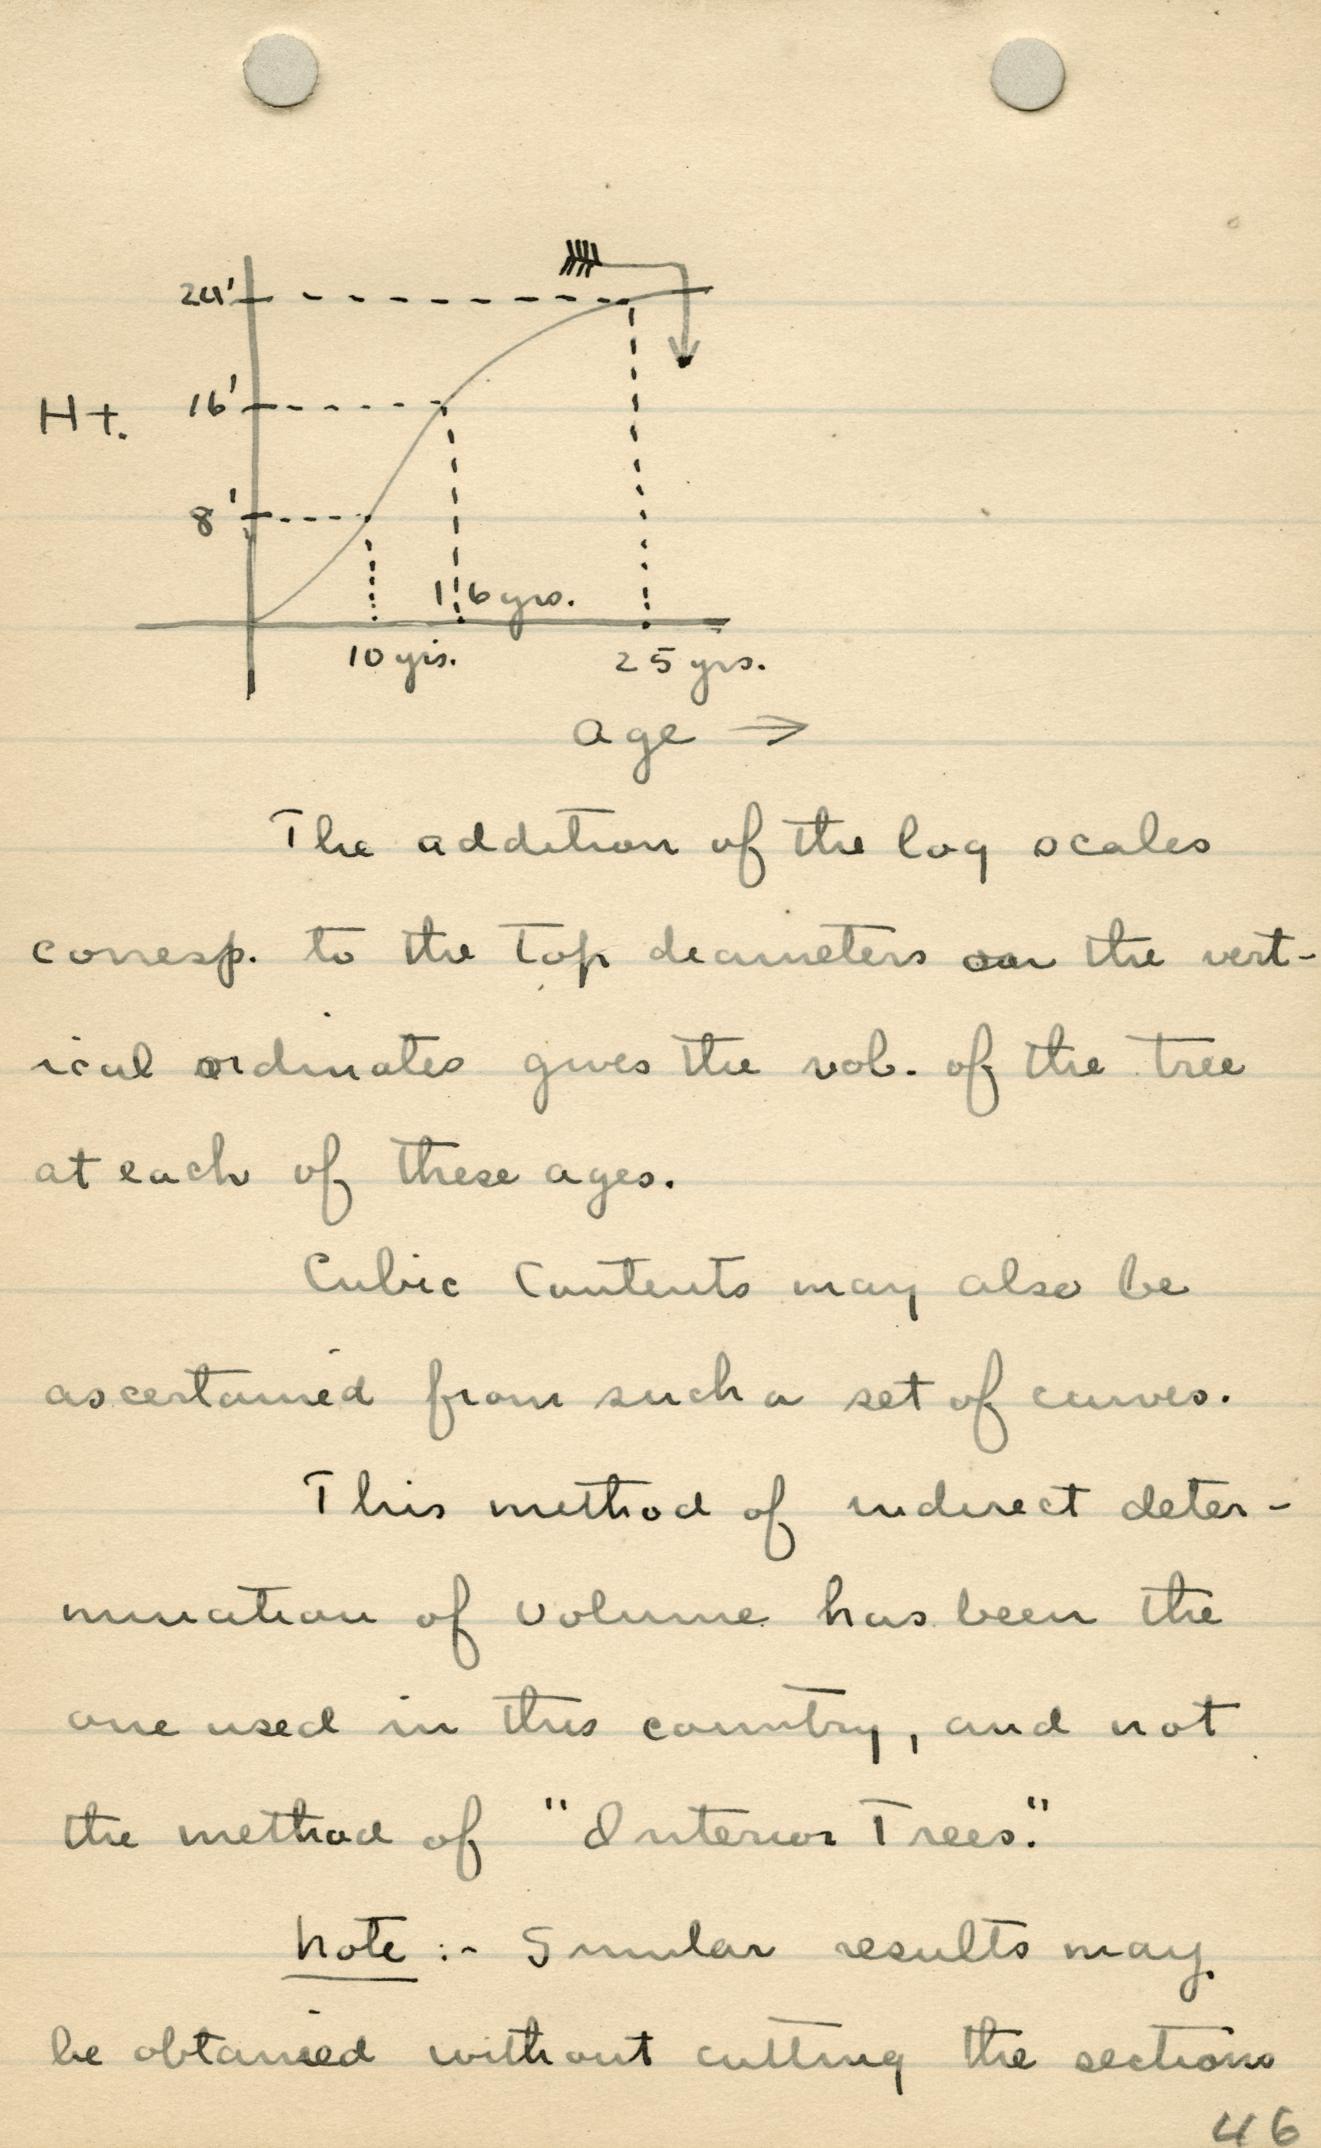 24'
Ht. 16'
8'
16 yrs.
10 yrs. 25 yrs.
age →
The addition of the log scales
corresp. to the top diameters on the vert-
ical ordinates gives the vol. of the tree
at each of these ages.
Cubic Contents may also be
ascertained from such a set of curves.
This method of indirect deter-
mination of volume has been the
one used in this country, and not
the method of "Interior Trees."
Note :- Similar results may
be obtained without cutting the sections
46